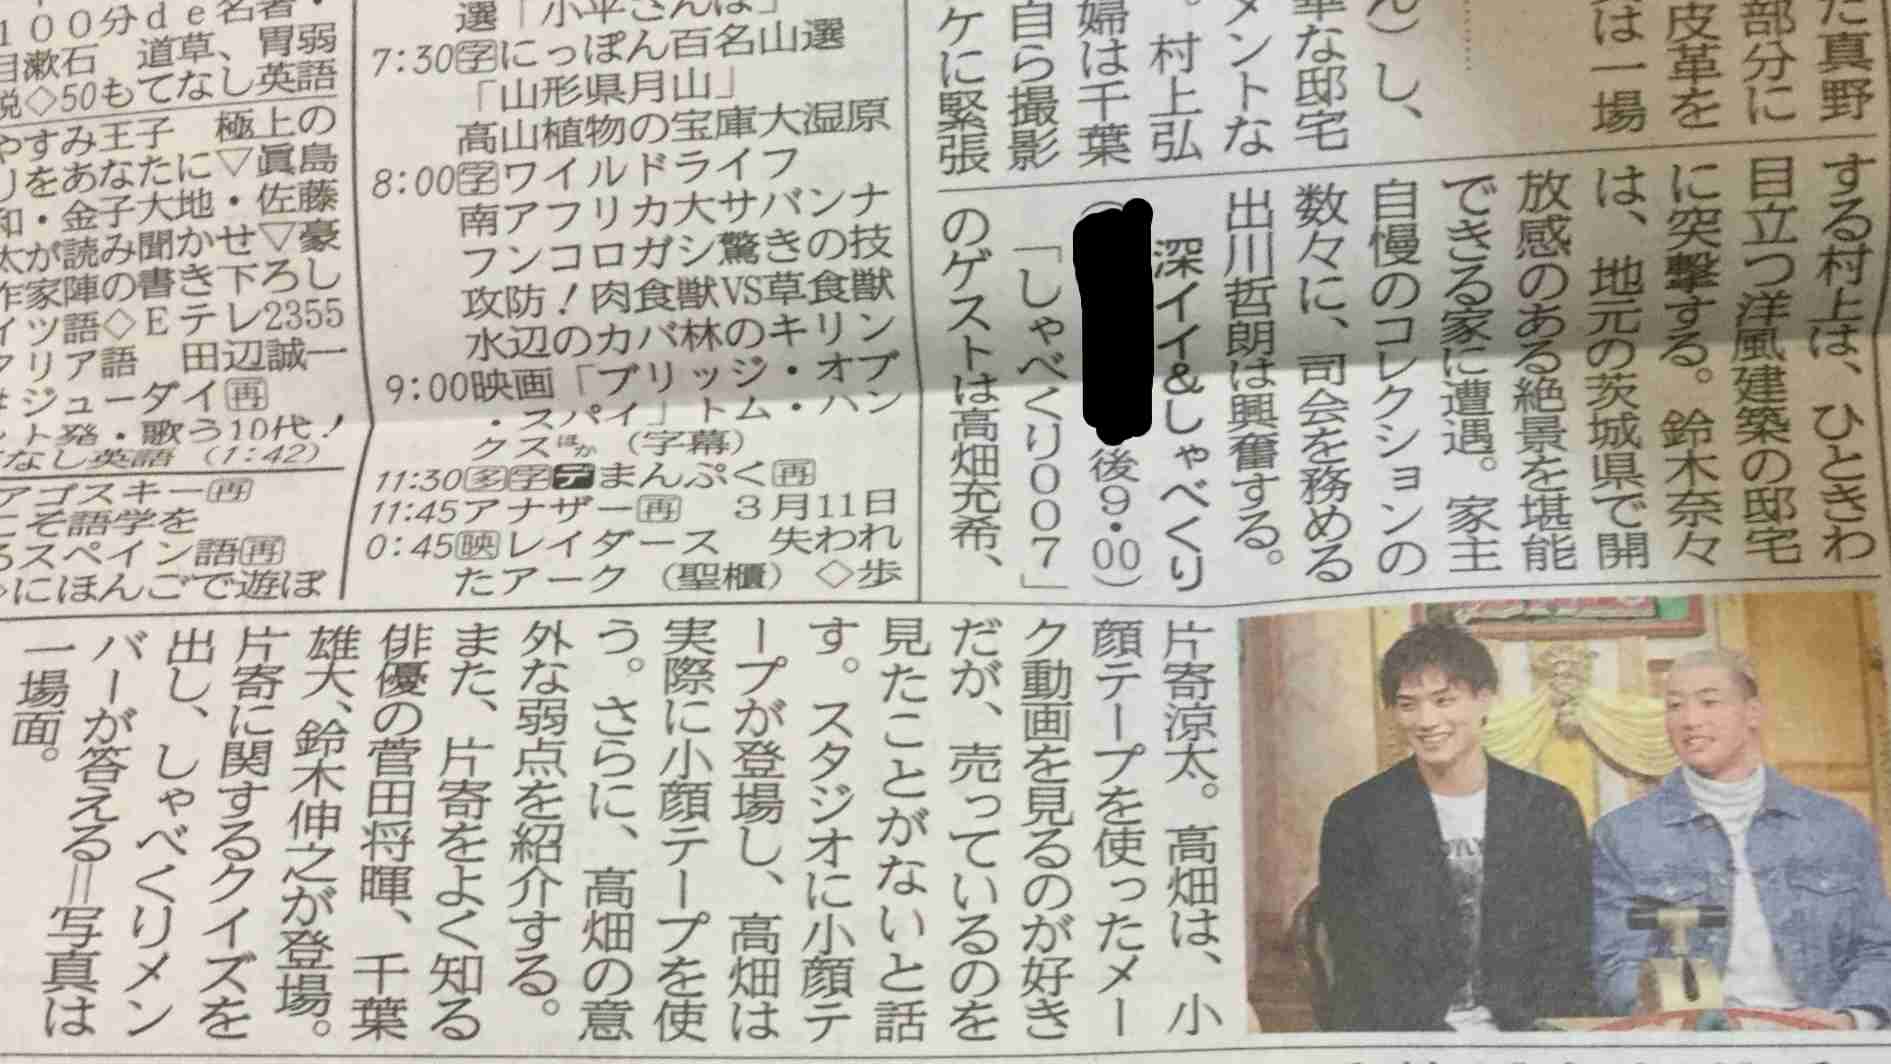 選「小平さんは」
7:30字にっぽん百名山選
「山形県月山」
高山植物の宝庫大湿原
8:00字ワイルドライフ
南アフリカ大サバンナ
フンコロガシ驚きの技
攻防!肉食獣VS草食獣
水辺のカバ林のキリン
9:00映画「ブリッジ・オブ
・スパイ」トム・ハン
クスほか(字幕)
11:30多字デまんぷく再
11:45アナザー再 3月11日
0:45映レイダース 失われ
たアーク(聖櫃)◇歩
100分de名著・
目漱石 道草、胃弱
説◇50もてなし英語
やすみ王子 極上の
りをあなたに▽眞島
和・金子大地・佐藤
太が読み聞かせ▽豪
作家陣の書き下ろし
イツ語◇Eテレ2355
アリア語 田辺誠一
#ジューダイ再
ント発・歌う10代!
てなし英語(1:42)
アゴスキー再
こそ語学を
るスペイン語再
◇にほんごで遊ぼ
た真野
部分に
皮革を
は一場
ん)し、
華な邸宅
メントな
。村上弘
婦は千葉
自ら撮影
ケに緊張
する村上は、ひときわ
目立つ洋風建築の邸宅
に突撃する。鈴木奈々
は、地元の茨城県で開
放感のある絶景を堪能
できる家に遭遇。家主
自慢のコレクションの
数々に、司会を務める
出川哲朗は興奮する。
深イイ&しゃべくり
(後9・00)
「しゃべくり007」
のゲストは高畑充希、
片寄涼太。高畑は、小
顔テープを使ったメー
ク動画を見るのが好き
だが、売っているのを
見たことがないと話
す。スタジオに小顔テ
ープが登場し、高畑は
実際に小顔テープを使
う。さらに、高畑の意
外な弱点を紹介する。
また、片寄をよく知る
俳優の菅田将暉、千葉
雄大、鈴木伸之が登場。
片寄に関するクイズを
出し、しゃべくりメン
バーが答える=写真は
一場面。